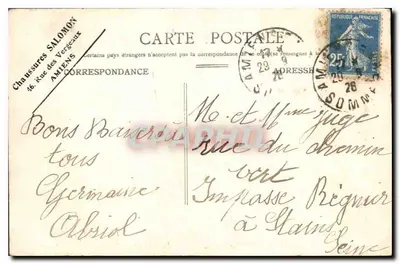 Chaussures SALOMON
46, Rue des Vergeaux
AMIENS
CARTE POSTALE
Tous les pays étrangers n'acceptent pas la correspondance
CORRESPONDANCE
ADRESSE
RÉPUBLIQUE FRANÇAISE
25
AMIENS
SOMME
26
Bons Baisers
tous
Germaine
Abriol
M. et Mme Juge
rue du chemin
vert
Impasse Régnier
à Stains
Seine